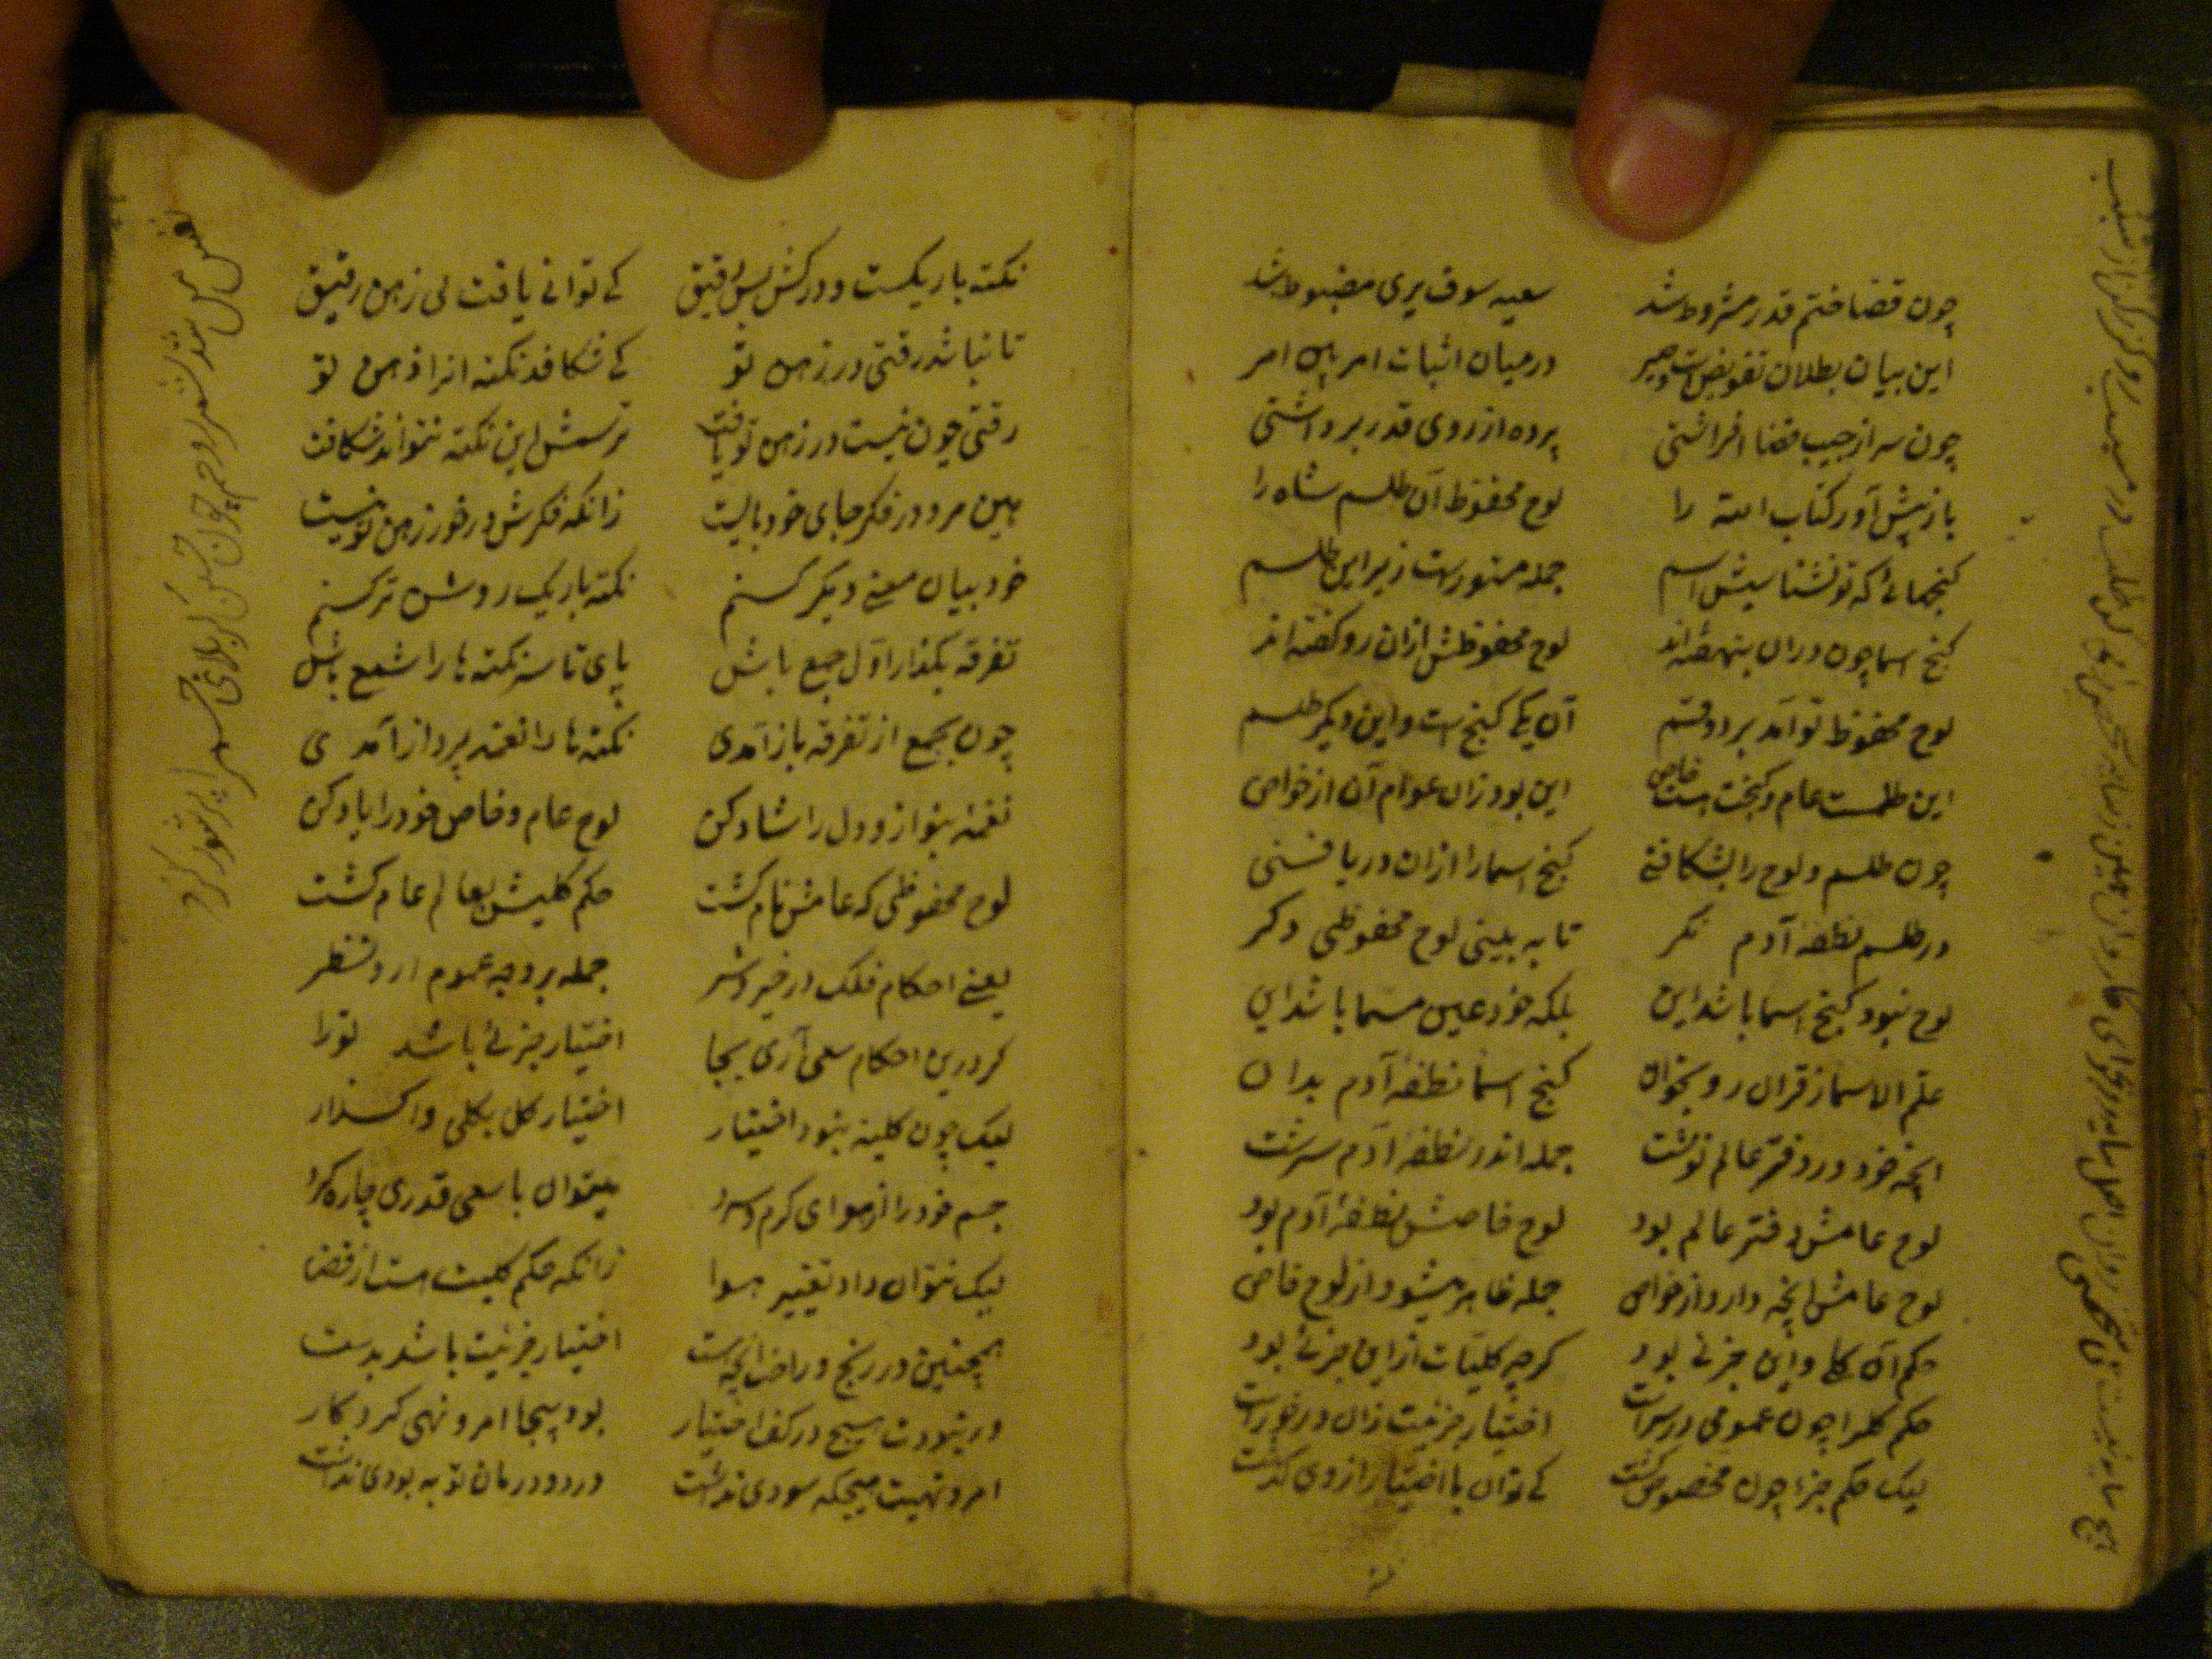 چون قضا ختم قدر مشروط شد سعیه سوف یری مضبوط شد
این بیان بطلان تفویض است وجبر در میان اثبات امر بین امر
چون سر از جیب قضا افراشتی پرده از روی قدر برداشتی
باز پیش آور کتاب الله را لوح محفوظ آن طلسم شاه را
کنجهائی که تو نشناسیش اسم جمله مستورست زیر این طلسم
کنج اسما چون در ان بنهفته‌اند لوح محفوظش ازان رو گفته‌اند
لوح محفوظ تو آمد بر دو قسم آن یکی کنج است و این دیگر طلسم
این طلسمت عام و کنجت هست خاص این بود زان عوام آن از خواص
چون طلسم و لوح را بشکافتی کنج اسما را ازان دریافتی
در طلسم نطفهٔ آدم نکر تا به بینی لوح محفوظی دکر
لوح نبود کنج اسما باشد این بلکه خود عین مسما باشد این
علم الاسما ز قران رو بخوان کنج اسما نطفهٔ آدم بدان
انچه خود در دفتر عالم نوشت جمله اندر نطفهٔ آدم سرشت
لوح عامش دفتر عالم بود لوح خاصش نطفهٔ آدم بود
لوح عامش انچه دارد از خواص جمله ظاهر میشود از لوح خاص
حکم آن کلی و این جزئی بود کرچه کلیات از این جزئی بود
حکم کلرا چون عمومی در سراست اختیار جزئیت زان در خور است
لیک حکم جزء چون مخصوص کشت کی توان با اختیار از وی کذشت
نکته باریکست و درکش بس دقیق کی توانی یافت بی ذهن رقیق
تا نباشد رقتی در ذهن تو کی شکافد نکته انرا ذهن تو
رقتی چون نیست در ذهن تو یافت ترسمش این نکته نتواند شکافت
هین مرو در فکر جای خود بایست زانکه فکرش در خور ذهن تو نیست
خود بیان معنی دیکر کنم نکته باریک روشن تر کنم
تفرقه بگذار اول جمع باش پای تا سر نکته ها را شمع باش
چون بجمع از تفرقه باز آمدی نکته ها را نغمه پرداز آمدی
نغمهٔ بنواز و دل را شاد کن لوح عام و خاص خود را یاد کن
لوح محفوظی که عامش نام کشت حکم کلیش بعالم عام کشت
یعنی احکام فلک در خیر و شر جمله بر وجه عموم ارد نظر
کر درین احکام سعی آری بجا اختیار جزئی باشد تو را
لیک چون کلیه نبود اختیار اختیار کل بکلی واکذار
جسم خود را از هوای کرم و سرد میتوان با سعی قدری چاره کرد
لیک نتوان داد تغییر هوا زانکه حکم کلیت هست از قضا
همچنین در رنج و راحت انچه هست اختیار جزئیت باشد بدست
ور نبودت هیچ در کف اختیار بود بیجا امر و نهی کردکار
امر و نهیت هیچکه سودی نداشت درد و درمان تو به بودی نداشت